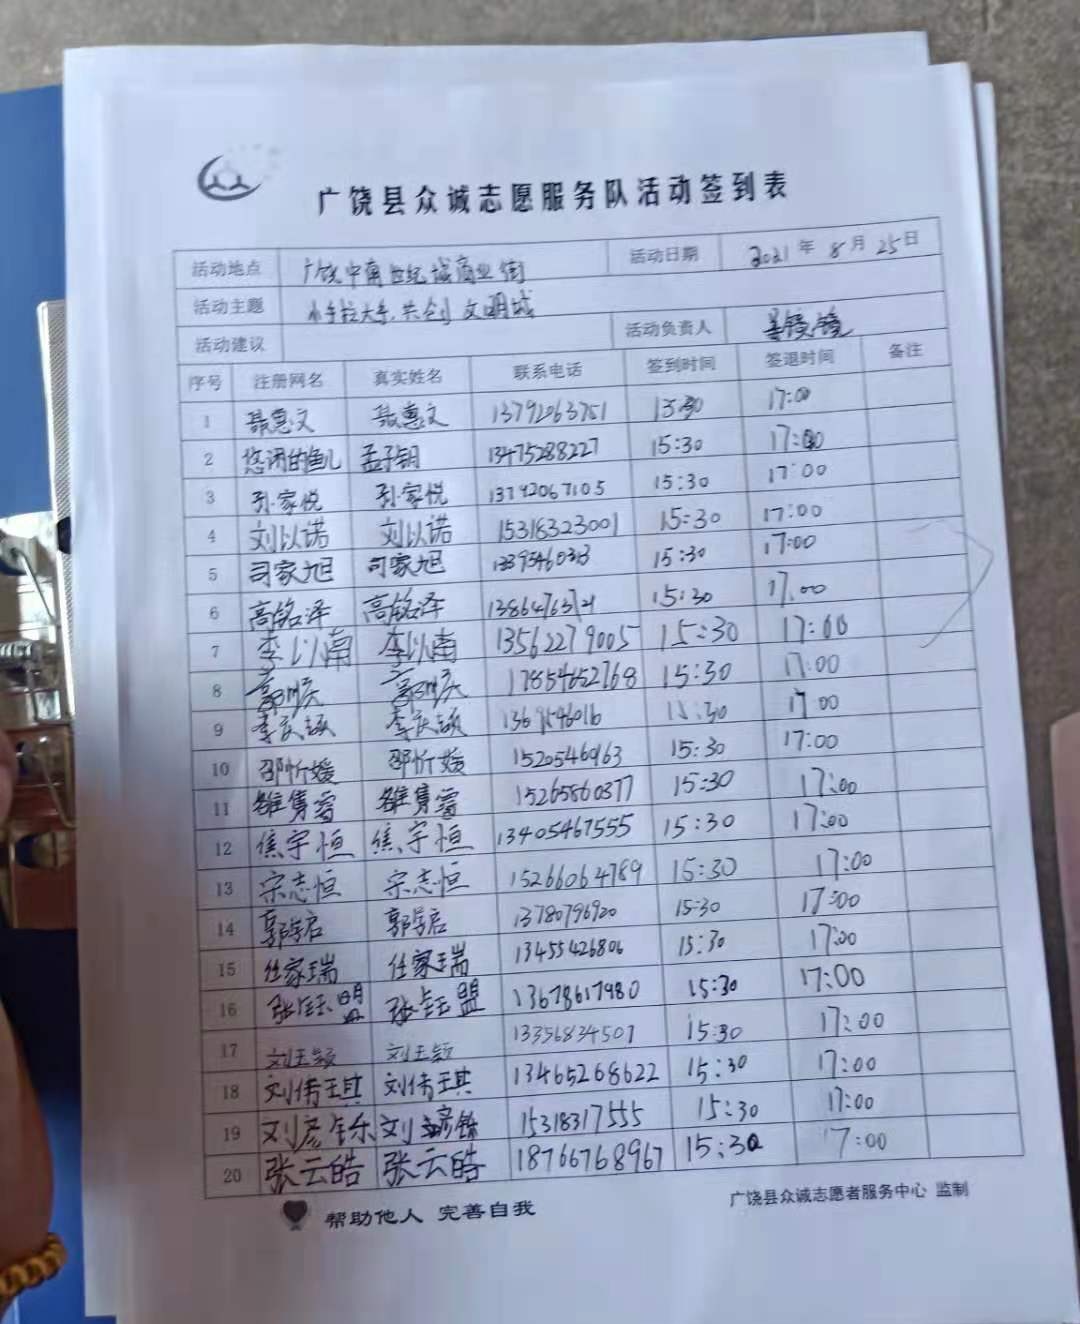 广饶县众诚志愿服务队活动签到表
活动地点 广饶中南世纪城商业街 活动日期 2021年8月25日
活动主题 小手拉大手,共创文明城
活动建议 活动负责人
序号 注册网名 真实姓名 联系电话 签到时间 签退时间 备注
1 聂惠文 聂惠文 13792063751 15:30 17:00
2 悠闲的鱼儿 孟子钥 13475288227 15:30 17:00
3 孙家悦 孙家悦 13792067105 15:30 17:00
4 刘以诺 刘以诺 15318323001 15:30 17:00
5 司家旭 司家旭 15:30 17:00
6 高铭泽 高铭泽 15:30 17:00
7 李以南 李以南 13562279005 15:30 17:00
8 17854652768 15:30 17:00
9 15:30 17:00
10 邵忻媛 邵忻媛 15205460163 15:30 17:00
11 15265860377 15:30 17:00
12 焦宇恒 焦宇恒 13405467555 15:30 17:00
13 宋志恒 宋志恒 15266064789 15:30 17:00
14 郭学启 郭学启 13780796920 15:30 17:00
15 任家瑞 任家瑞 13455426806 15:30 17:00
16 张钰盟 张钰盟 13678617980 15:30 17:00
17 刘玉颖 刘玉颖 13356834507 15:30 17:00
18 刘倩琪 刘倩琪 13465268622 15:30 17:00
19 刘彦铄 刘彦铄 15318317555 15:30 17:00
20 张云皓 张云皓 18766768967 15:30 17:00
帮助他人 完善自我
广饶县众诚志愿者服务中心 监制